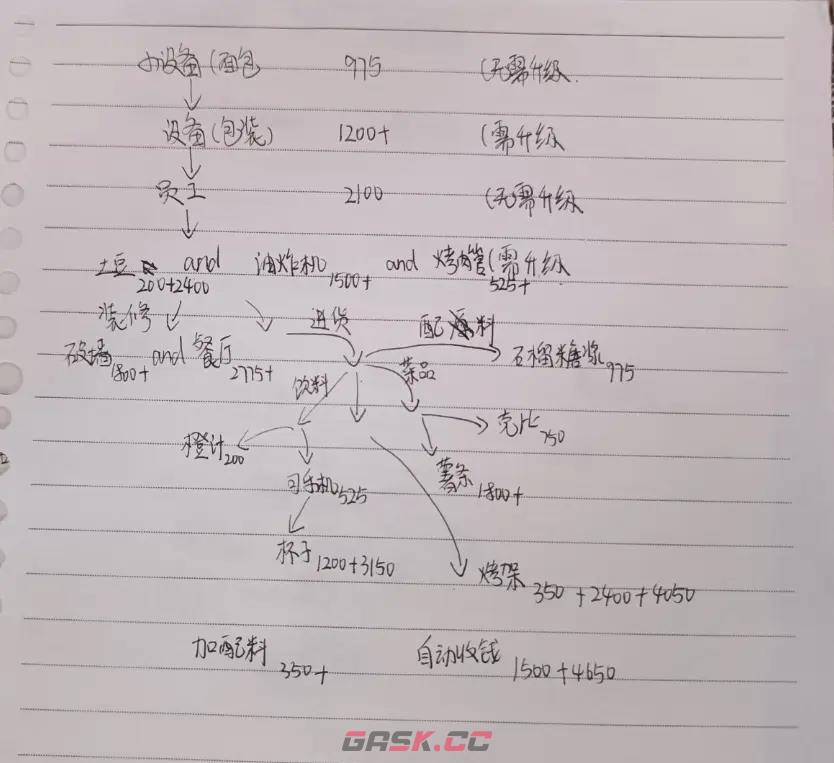 小设备(面包 975 (无需升级.
设备(包装) 1200+ (需升级
员工 2100 (无需升级
土豆 200+2400 and 油炸机 1500+ and 烤肉管(需升级 525+
装修 进货 配料
砍墙 1800+ and 餐厅 2775+ 石榴糖浆 975
饮料 菜品
壳比 750
橙汁 200 薯条 1800+
可乐机 525
杯子 1200+3150 烤架 350+2400+4050
加配料 350+ 自动收钱 1500+4650
GASK.CC